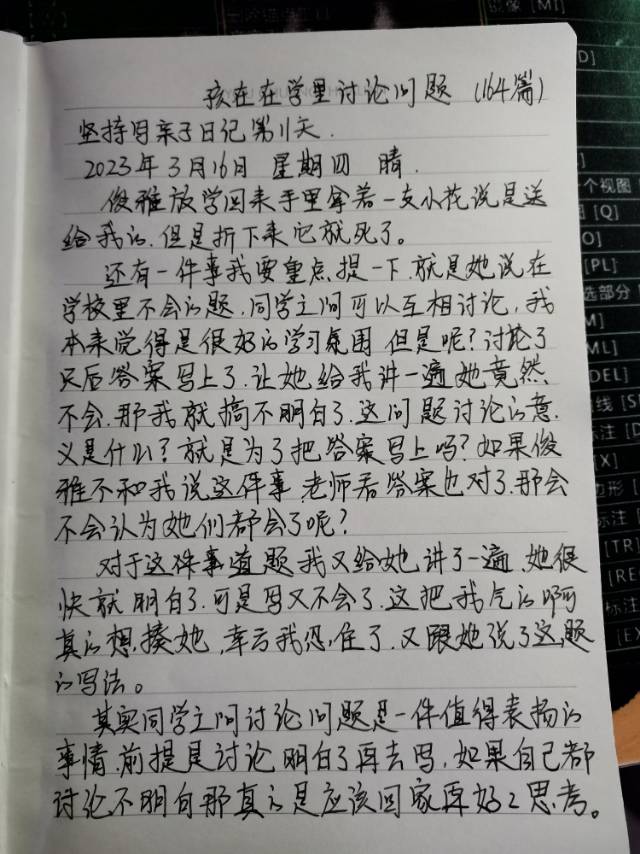 孩在在学里讨论问题 (164篇)
坚持写亲子日记第11天.
2023年3月16日 星期四 晴.
俊雅放学回来手里拿着一支小花说是送
给我的.但是折下来它就死了。
还有一件事我要重点提一下.就是她说在
学校里不会的题.同学之间可以互相讨论,我
本来觉得是很好的学习氛围 但是呢?讨论了
只后答案写上了.让她给我讲一遍她竟然
不会.那我就搞不明白了.这问题讨论的意.
义是什么?就是为了把答案写上吗?如果俊
雅不和我说这件事 老师看答案也对了.那会
不会认为她们都会了呢?
对于这件事道题我又给她讲了一遍.她很
快就明白了.可是写又不会了.这把我气的啊
真的想揍她,幸亏我忍住了.又跟她说了这题
的写法。
其实同学之间讨论问题是一件值得表扬的
事情.前提是讨论明白了再去写,如果自己都
讨论不明白那真的是应该回家再好好思考。
影像 [MI]
[D]
个视图
[Q]
[O]
[PL]
选部分
[M]
[ML]
[DEL]
线 [S
标注 [D
[X]
边形
标注
[TR]
[RE
标注
[EX